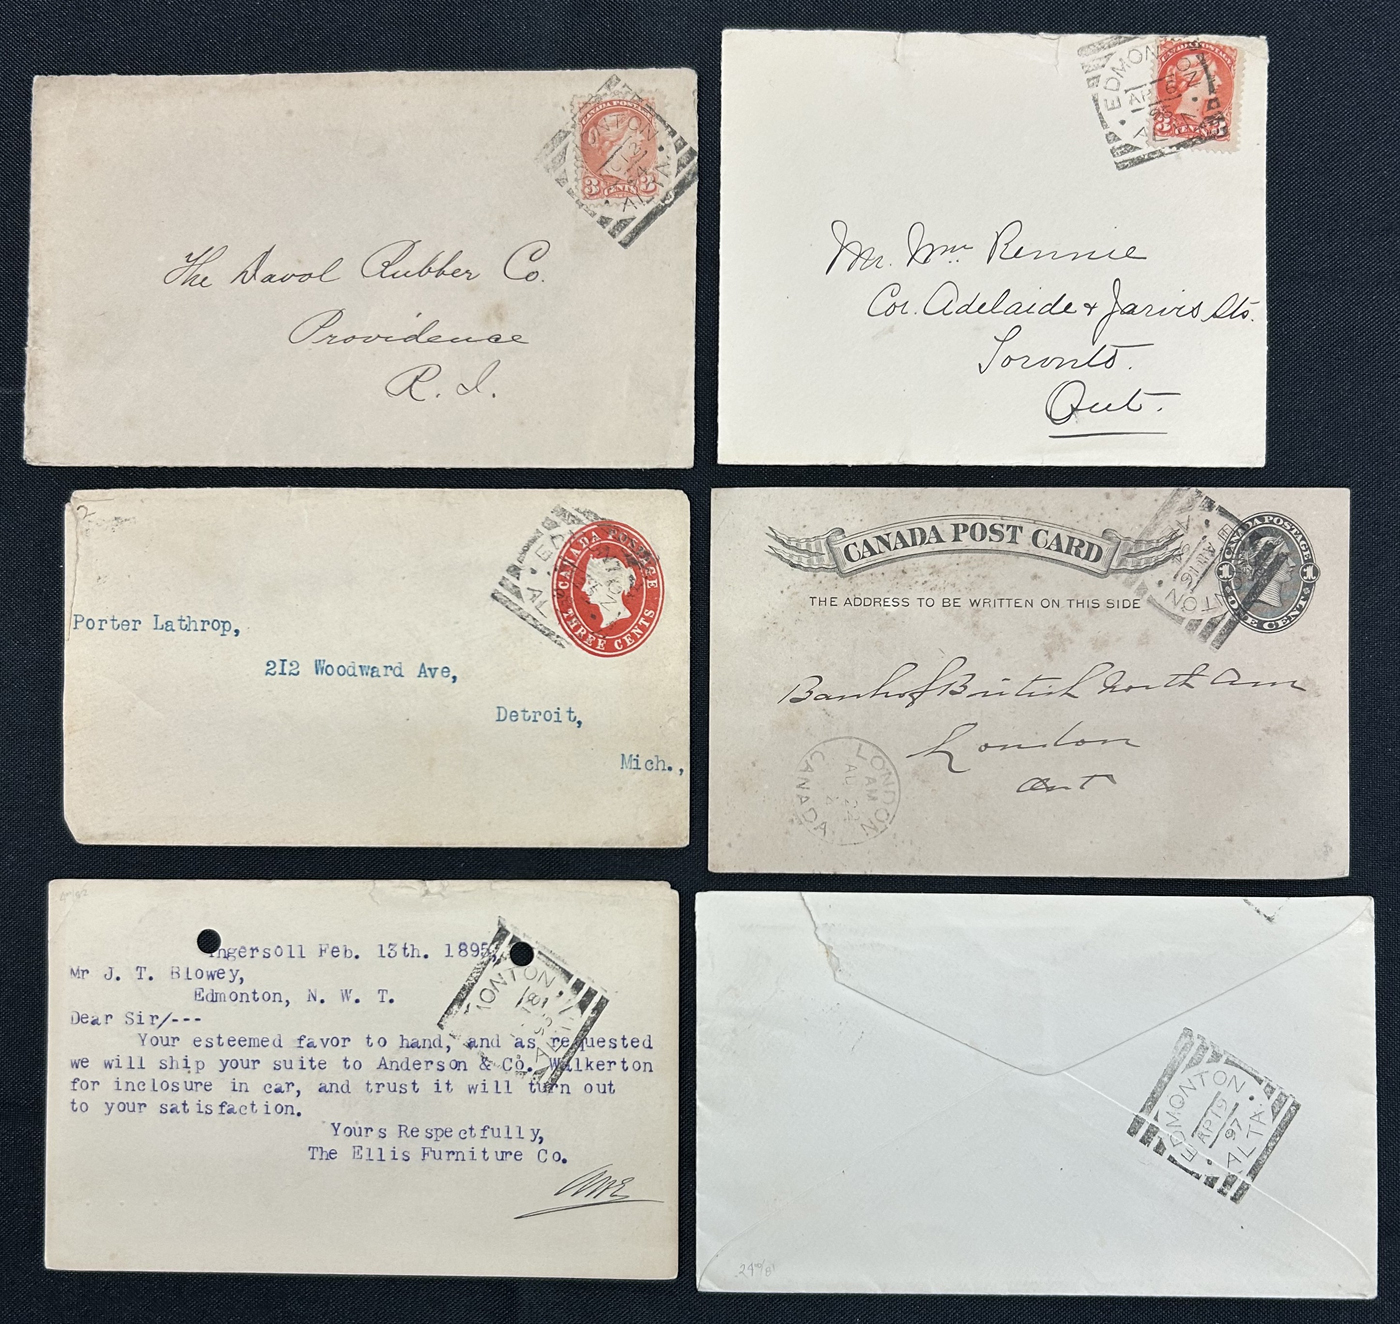 CANADA POSTAGE
3 CENTS 3
NTON
ALTA
The Davol Rubber Co.
Providence
R. I.
CANADA POSTAGE
3 CENTS 3
EDMONTON
AP
AL
Mr. Wm Rennie
Cor. Adelaide & Jarvis Sts.
Toronto.
Ont.
2
CANADA POSTAGE
THREE CENTS
ED
AL
Porter Lathrop,
212 Woodward Ave,
Detroit,
Mich.,
CANADA POST CARD
THE ADDRESS TO BE WRITTEN ON THIS SIDE
CANADA POSTAGE
1 ONE CENT 1
TON
Bank of British North Am
London
Ont
LONDON
AM
AU 24
CANADA
Ingersoll Feb. 13th. 1895,
Mr J. T. Blowey,
Edmonton, N. W. T.
Dear Sir/---
Your esteemed favor to hand, and as requested
we will ship your suite to Anderson & Co. Walkerton
for inclosure in car, and trust it will turn out
to your satisfaction.
Yours Respectfully,
The Ellis Furniture Co.
MONTON
EDMONTON
AP 15
97
ALTA